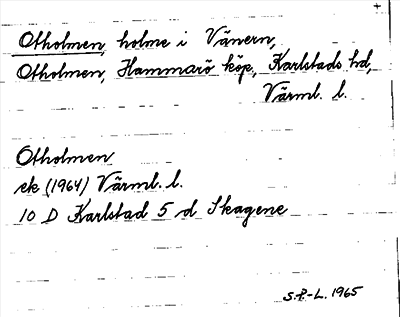 Otholmen, holme i Vänern,
Otholmen, Hammarö köp, Karlstads hd,
Värml. l.
Otholmen
ek (1964) Värml. l.
10 D Karlstad 5 d Skagene
S.P.-L. 1965